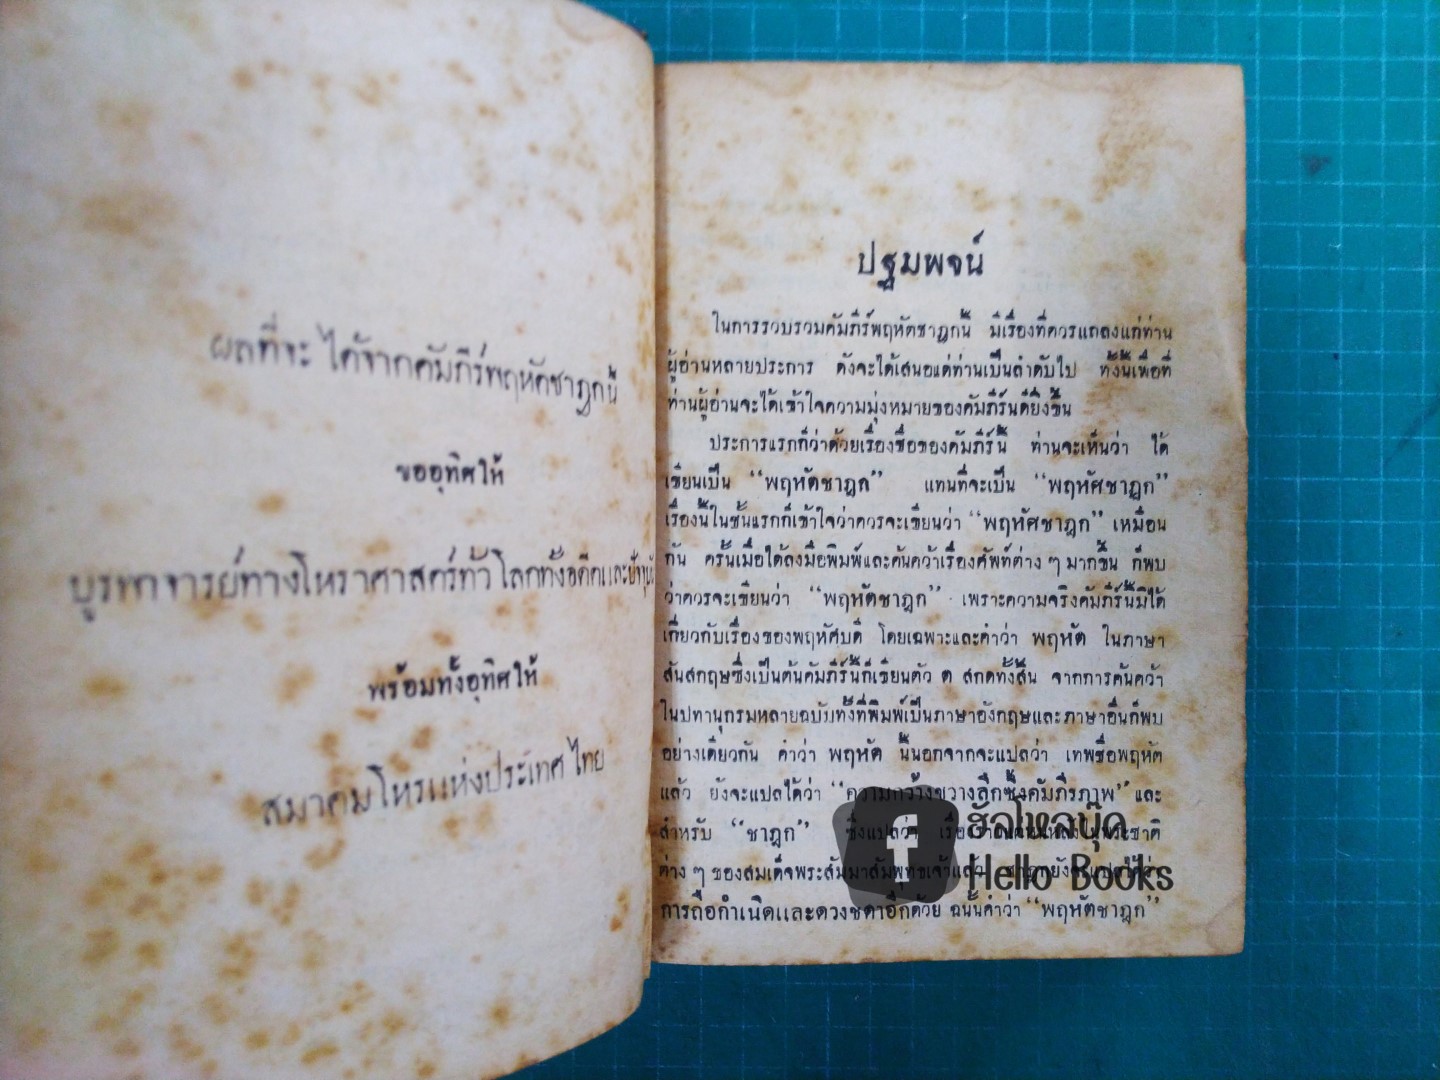 ผลที่จะได้จากคัมภีร์พฤหัตชาฎกนี้
ขออุทิศให้
บูรพาจารย์ทางโหราศาสตร์ทั่วโลกทั้งอดีตและปัจจุบัน
พร้อมทั้งอุทิศให้
สมาคมโหรแห่งประเทศไทย
ปฐมพจน์
ในการรวบรวมคัมภีร์พฤหัตชาฎกนี้ มีเรื่องที่ควรแถลงแก่ท่าน
ผู้อ่านหลายประการ ดังจะได้เสนอแด่ท่านเป็นลำดับไป ทั้งนี้เพื่อที่
ท่านผู้อ่านจะได้เข้าใจความมุ่งหมายของคัมภีร์นี้ดียิ่งขึ้น
ประการแรกก็ว่าด้วยเรื่องชื่อของคัมภีร์นี้ ท่านจะเห็นว่า ได้
เขียนเป็น “พฤหัตชาฎก” แทนที่จะเป็น “พฤหัศชาฎก”
เรื่องนี้ในชั้นแรกก็เข้าใจว่าควรจะเขียนว่า “พฤหัศชาฎก” เหมือน
กัน ครั้นเมื่อได้ลงมือพิมพ์และค้นคว้าเรื่องศัพท์ต่าง ๆ มากขึ้น ก็พบ
ว่าควรจะเขียนว่า “พฤหัตชาฎก” เพราะความจริงคัมภีร์นี้มิได้
เกี่ยวกับเรื่องของพฤหัศบดี โดยเฉพาะและคำว่า พฤหัต ในภาษา
สันสกฤษซึ่งเป็นต้นคัมภีร์นี้ก็เขียนตัว ต สกดทั้งสิ้น จากการค้นคว้า
ในปทานุกรมหลายฉบับทั้งที่พิมพ์เป็นภาษาอังกฤษและภาษาอื่นก็พบ
อย่างเดียวกัน คำว่า พฤหัต นี้นอกจากจะแปลว่า เทพชื่อพฤหัต
แล้ว ยังจะแปลได้ว่า “ความกว้างขวางลึกซึ้งคัมภีรภาพ” และ
สำหรับ “ชาฎก” ซึ่งแปลว่า เรื่องราวแต่หนหลังในพระชาติ
ต่าง ๆ ของสมเด็จพระสัมมาสัมพุทธเจ้าแล้ว ชาฎกยังจะแปลได้ว่า
การถือกำเนิดและดวงชตาอีกด้วย ฉนั้นคำว่า “พฤหัตชาฎก”
ฮัลโหลบุ๊ค
Hello Books